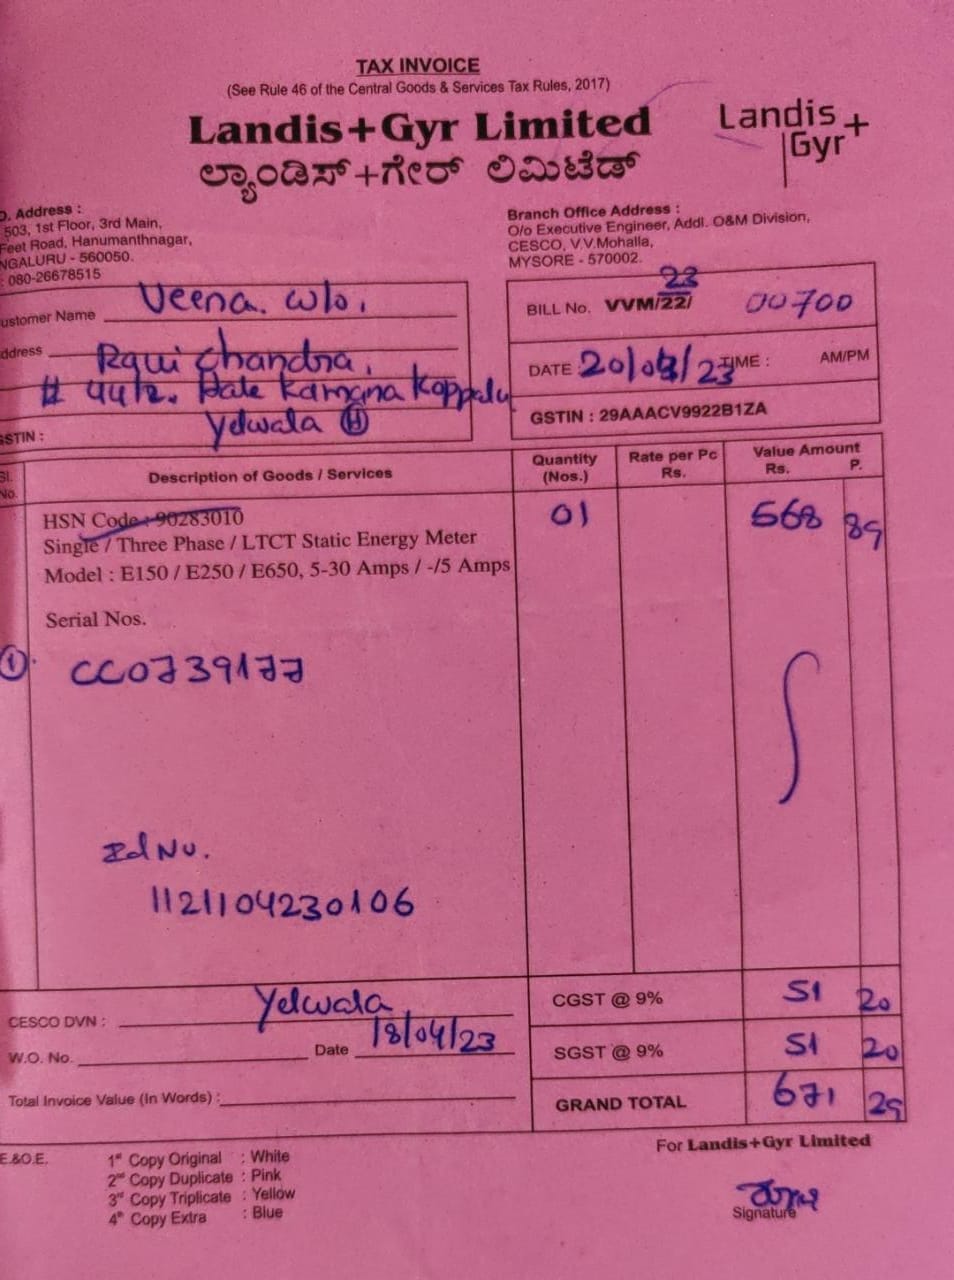 TAX INVOICE
(See Rule 46 of the Central Goods & Services Tax Rules, 2017)
Landis+Gyr Limited
ಲ್ಯಾಂಡಿಸ್+ಗೇರ್ ಲಿಮಿಟೆಡ್
Landis+
Gyr
Address :
503, 1st Floor, 3rd Main,
Feet Road, Hanumanthnagar,
NGALURU - 560050.
: 080-26678515
Branch Office Address :
O/o Executive Engineer, Addl. O&M Division,
CESCO, V.V.Mohalla,
MYSORE - 570002.
ustomer Name Veena. W/o.
ddress Ravi Chandra,
# 44/2. Hale Kamana Koppalu
Yelwala (H)
GSTIN :
23
BILL No. VVM/22/ 00700
DATE 20/04/23 TIME : AM/PM
GSTIN : 29AAACV9922B1ZA
Sl. No. Description of Goods / Services Quantity (Nos.) Rate per Pc Rs. Value Amount Rs. P.
HSN Code : 90283010 01 568 89
Single / Three Phase / LTCT Static Energy Meter
Model : E150 / E250 / E650, 5-30 Amps / -/5 Amps
Serial Nos.
1. CC0739177
Id No.
1121104230106
CESCO DVN : Yelwala
W.O. No. Date 18/04/23
Total Invoice Value (In Words) :
CGST @ 9% 51 20
SGST @ 9% 51 20
GRAND TOTAL 671 29
E.&O.E.
1st Copy Original : White
2nd Copy Duplicate : Pink
3rd Copy Triplicate : Yellow
4th Copy Extra : Blue
For Landis+Gyr Limited
Signature